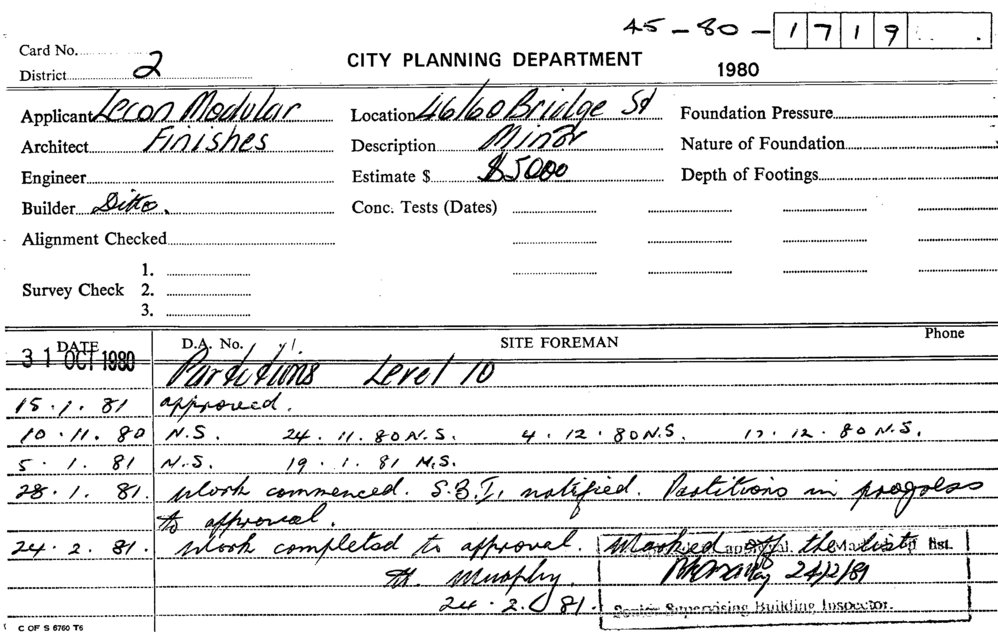 45-80-1719
Card No.
District 2
CITY PLANNING DEPARTMENT
1980
Applicant Lecon Modular
Location 46/60 Bridge St
Foundation Pressure
Architect Finishes
Description Minor
Nature of Foundation
Engineer
Estimate $ $5000
Depth of Footings
Builder Ditto.
Conc. Tests (Dates)
Alignment Checked
Survey Check 1.
2.
3.
DATE
D.A. No.
SITE FOREMAN
Phone
31 OCT 1980
Partitions Level 10
15.1.81 approved.
10.11.80 N.S. 24.11.80 N.S. 4.12.80 N.S. 17.12.80 N.S.
5.1.81 N.S. 19.1.81 N.S.
28.1.81. Work commenced. S.B.I. notified. Partitions in progress
to approval.
24.2.81. Work completed to approval. Marked off the list
Murphy. 24/2/81
24.2.81.
Senior Supervising Building Inspector.
C OF S 6760 T6